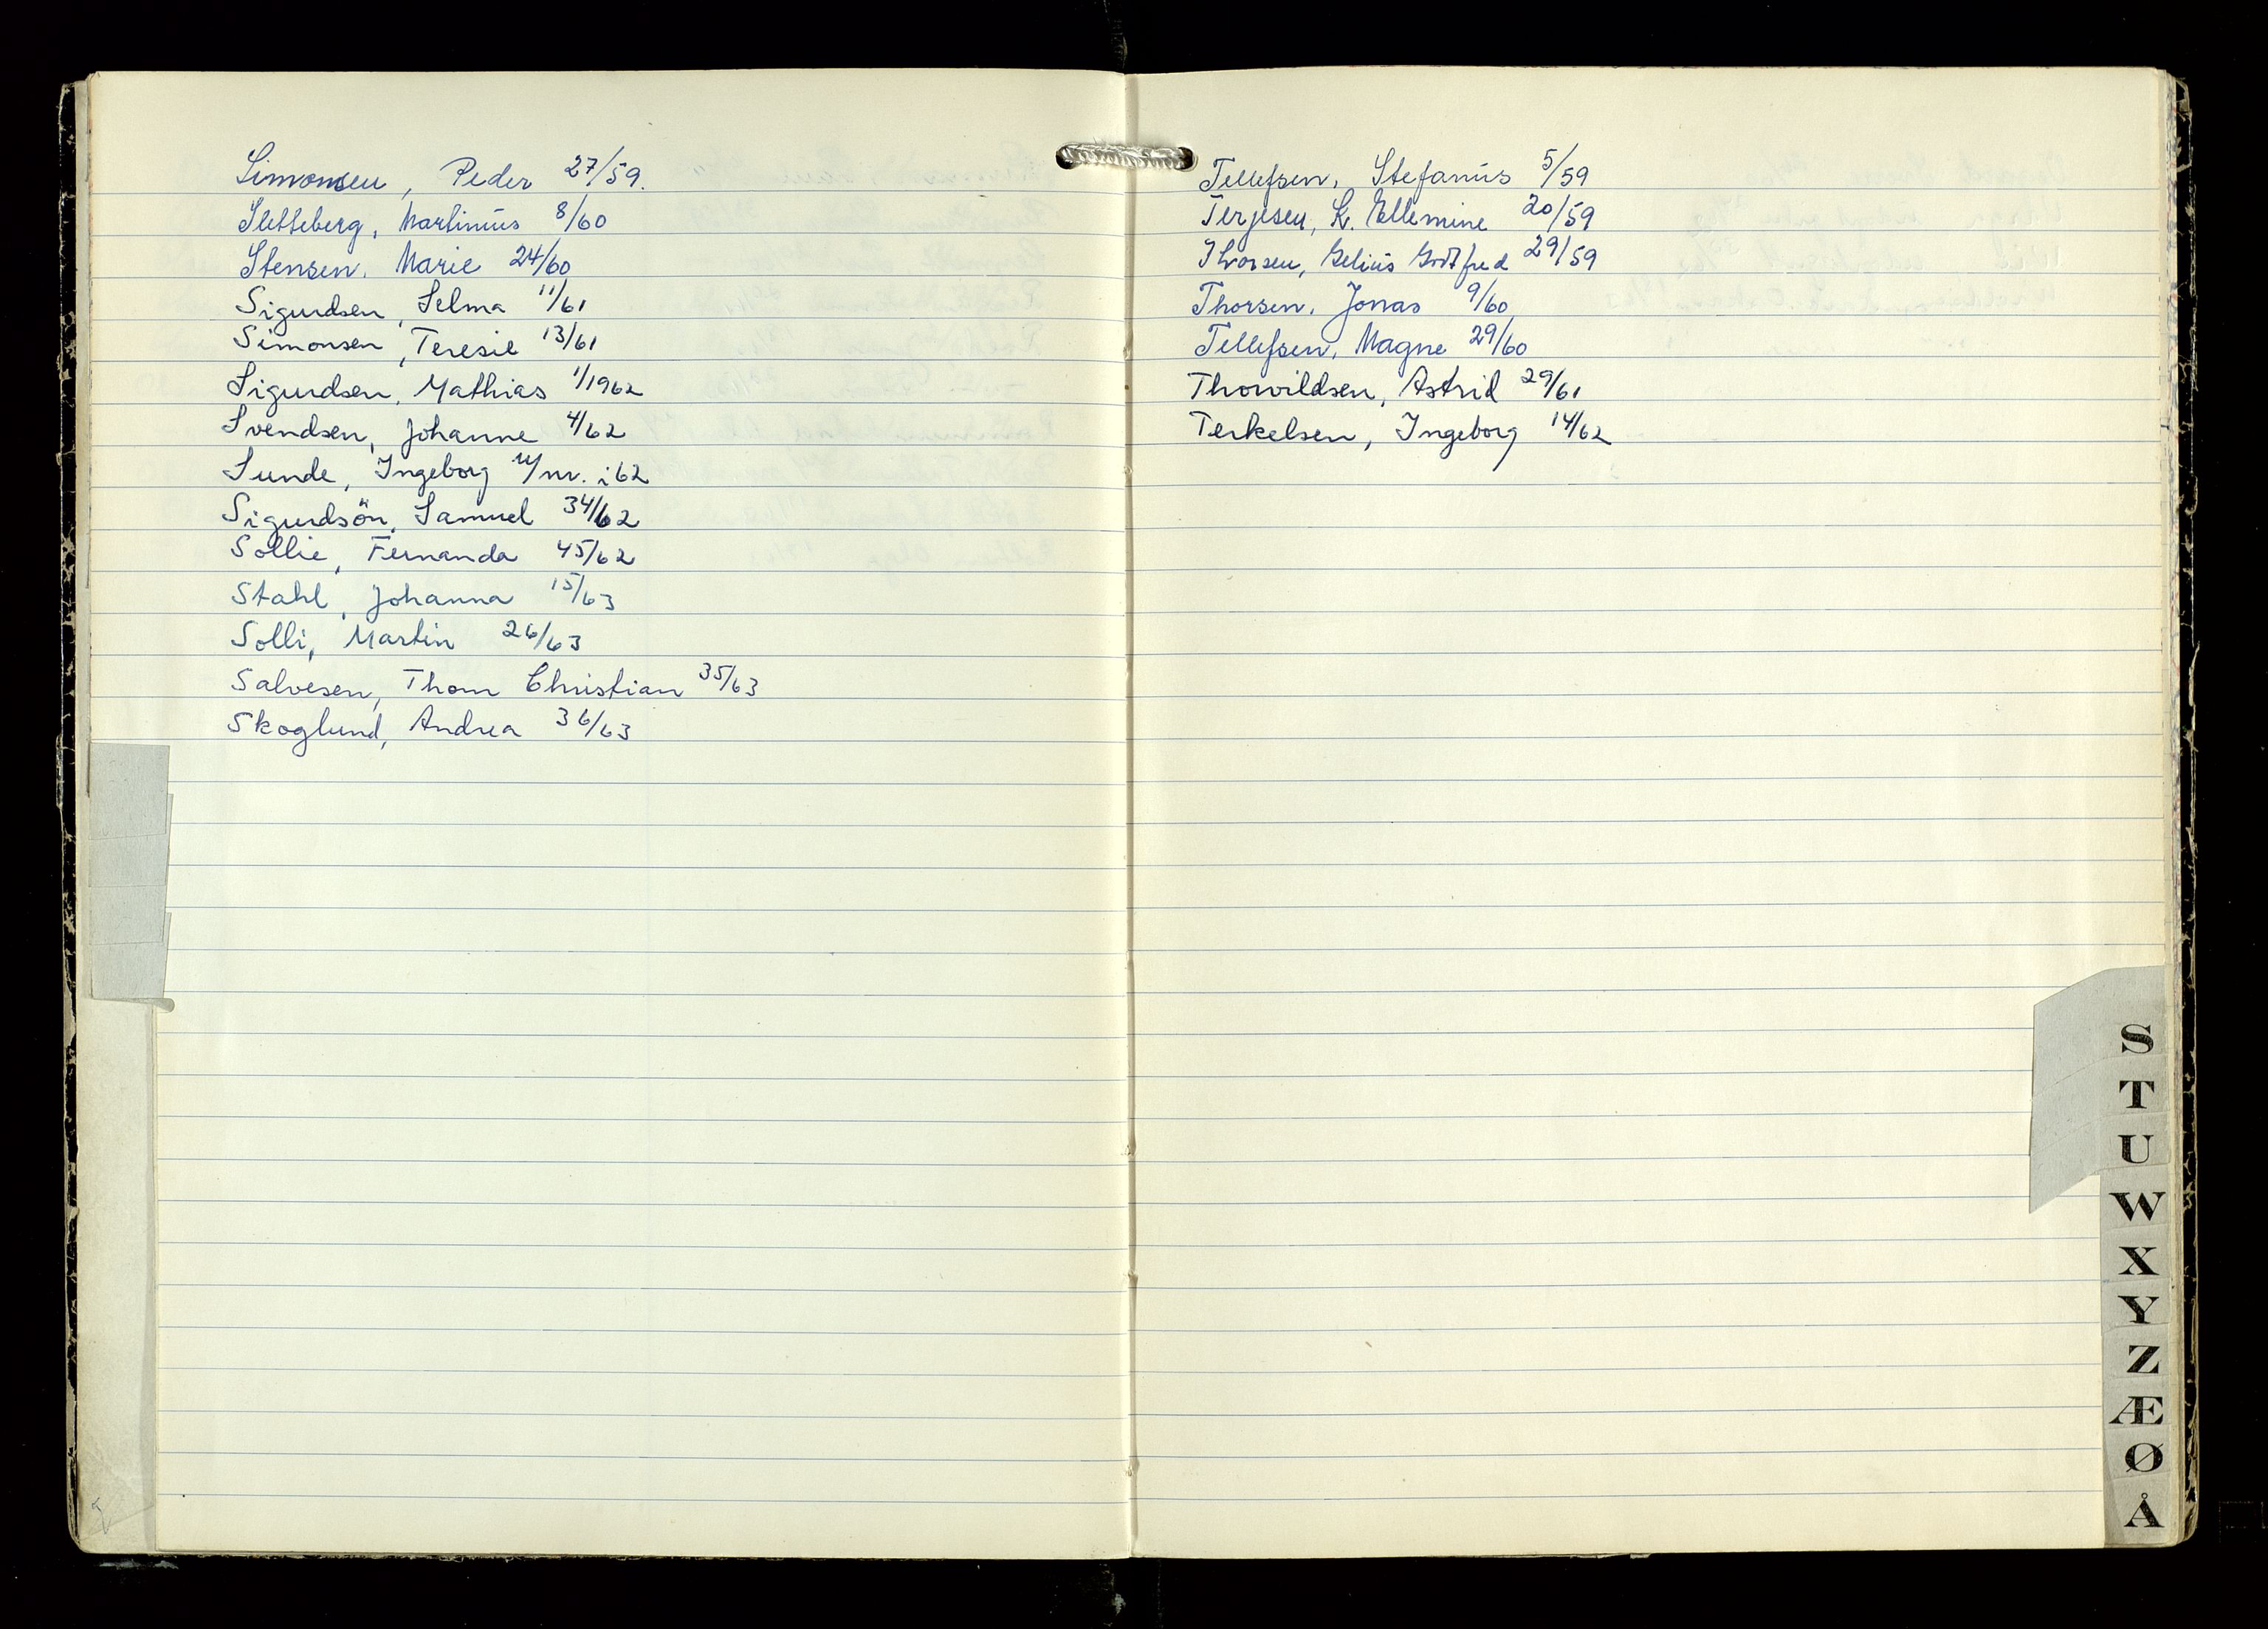 Simonsen, Peder 27/59.
Sletteberg, Martinius 8/60
Stensen, Marie 24/60
Sigurdsen, Selma 11/61
Simonsen, Teresie 13/61
Sigurdsen, Mathias 1/1962
Svendsen, Johanne 4/62
Sunde, Ingeborg u/nr. i 62
Sigurdsön, Samuel 34/62
Sollie, Fernanda 45/62
Stahl, Johanna 15/63
Solli, Martin 26/63
Salvesen, Thom Christian 35/63
Skoglund, Andrea 36/63
Tellefsen, Stefanius 5/59
Terjesen, K. Ellemine 20/59
Thorsen, Gelius Godtfred 29/59
Thorsen, Jonas 9/60
Tellefsen, Magne 29/60
Thorvildsen, Astrid 29/61
Terkelsen, Ingeborg 14/62
S
T
U
W
X
Y
Z
Æ
Ø
Å